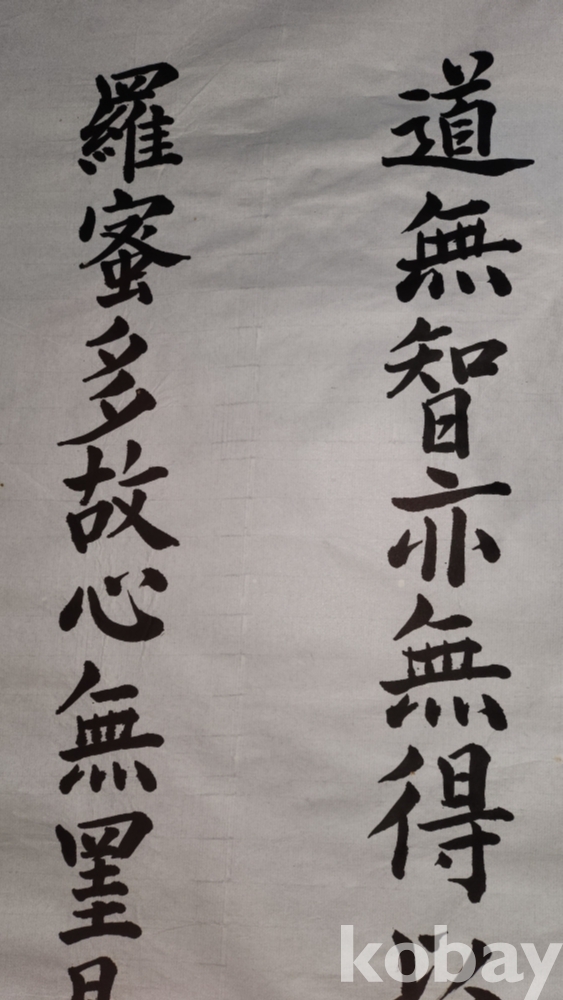 道無智亦無得以
羅蜜多故心無罣
kobay